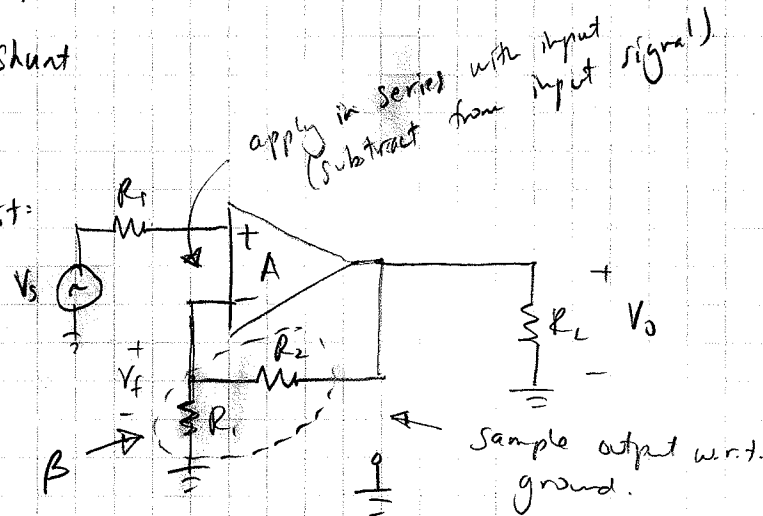 Shunt
apply in series with input
(subtract from input signal)
st:
Vs
+
A
-
R2
+
Vf
-
R1
β
RL
+
Vo
-
sample output w.r.t.
ground.